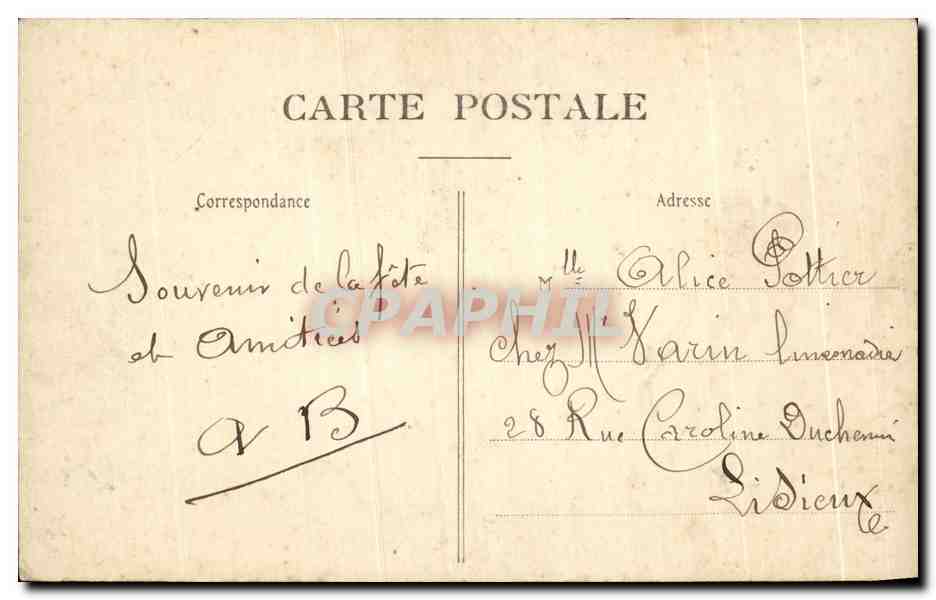 CARTE POSTALE
Correspondance
Adresse
Souvenir de la fête
et Amitiés
A B
Mlle Alice Pottier
chez Mr Varin limonadier
28 Rue Caroline Duchemin
Lisieux
CPAPHIL